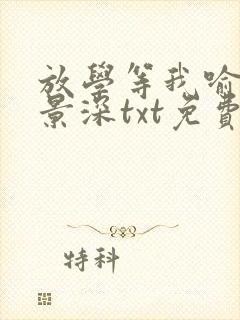 放學等我喻
景深txt免費
特科